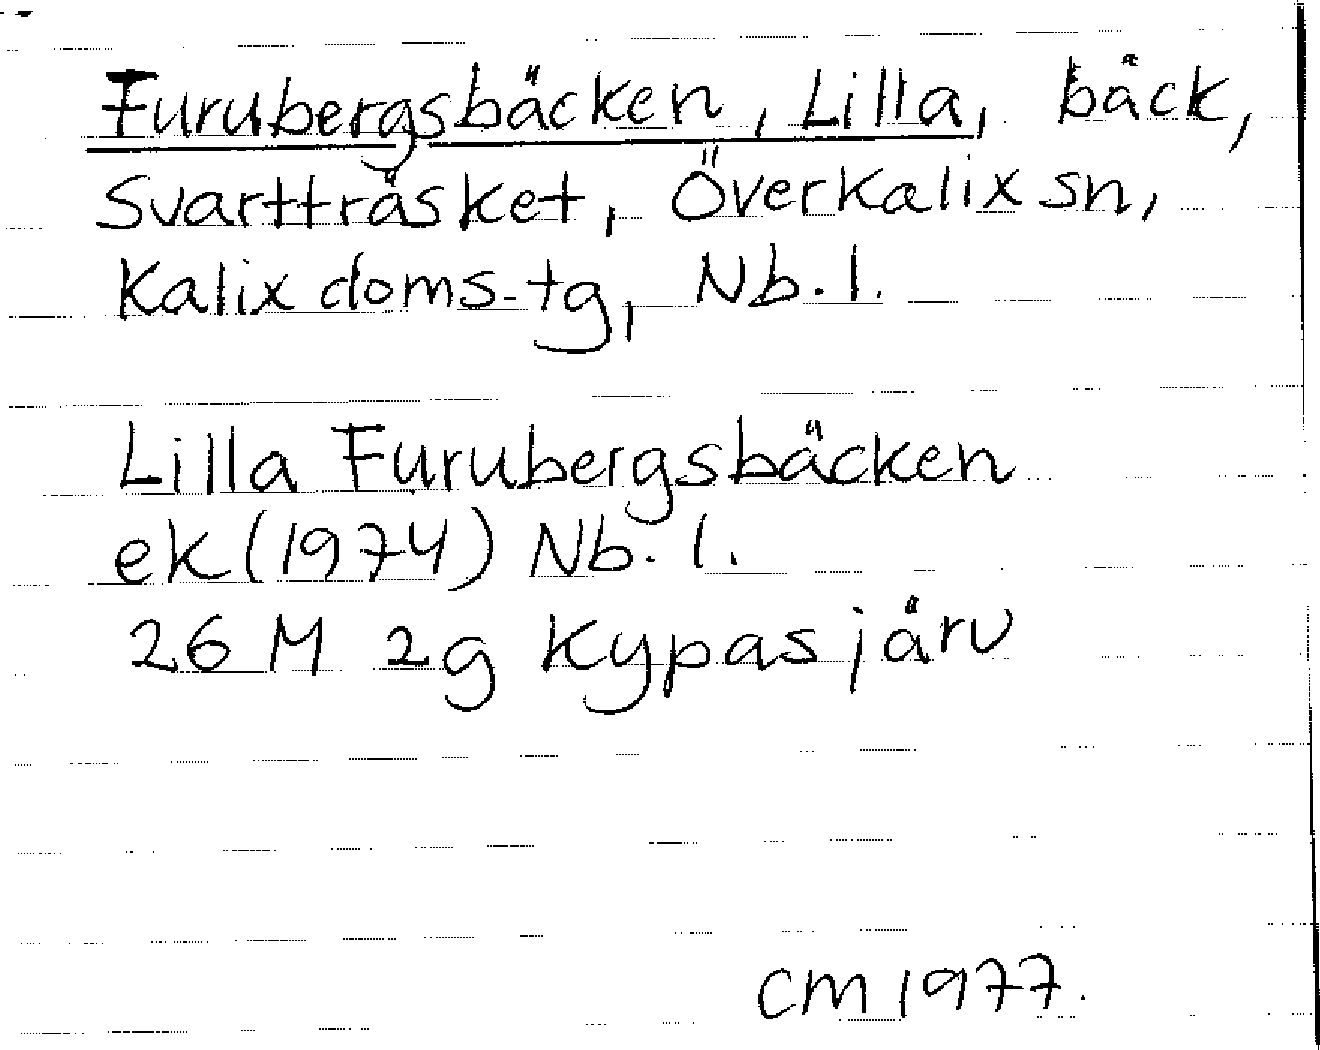 Furubergsbäcken, Lilla, bäck,
Svartträsket, Överkalix sn,
Kalix doms. tg, Nb. l.
Lilla Furubergsbäcken
ek (1974) Nb. l.
26 M 2g Kypasjärv
CM 1977.